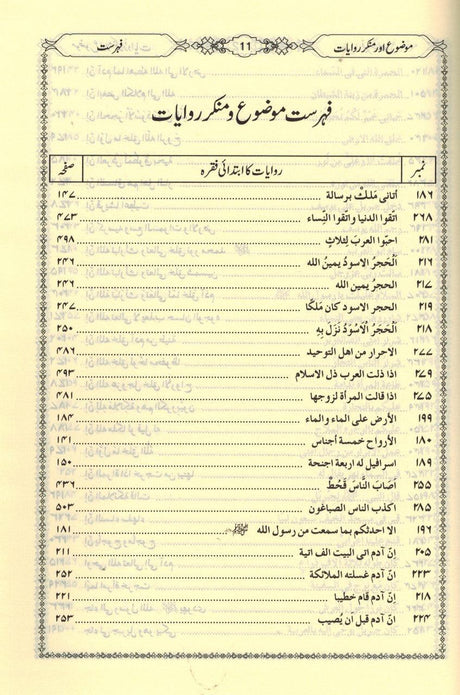 موضوع اور منکر روایات 11 فہرست
فہرست موضوع و منکر روایات
نمبر روایات کا ابتدائی فقرہ صفحہ
۱۸۶ أتانی مَلِکٌ برسالة ۱۴۷
۲۶۸ اتقوا الدنیا واتقوا النِّساء ۴۷۳
۲۸۱ احبّوا العربَ لِثلاثٍ ۴۹۸
۲۱۶ اَلْحَجرُ الاسودُ یمینُ الله ۲۴۶
۲۱۷ الحجرُ یمین الله ۲۴۶
۲۱۹ الحجر الاسود کان مَلَکًا ۲۴۷
۲۱۸ اَلْحَجَرُ الْاَسْوَدُ نَزَلَ بِهٖ ۲۵۰
۲۷۷ الاحرار من اهل التوحید ۴۸۶
۲۷۹ اذا ذلت العرب ذل الاسلام ۴۹۳
۲۷۵ اذا قالت المرأة لزوجها ۴۸۱
۱۹۹ الأرض علی الماء والماء ۱۸۴
۱۸۰ الأرواح خمسة أجناس ۱۴۱
۱۸۹ اسرافیل له اربعة اجنحة ۱۵۰
۲۵۵ اَصَابَ النَّاسَ قَحْطٌ ۴۳۶
۲۸۵ اکذب الناس الصباغون ۵۰۳
۱۹۶ الا احدثکم بما سمعت من رسول الله ﷺ ۱۸۱
۲۰۵ اِنّ آدم اتی البیت الف اتیة ۲۱۱
۲۲۳ انّ آدم غسلته الملائکة ۲۵۲
۲۱۸ اِنّ آدم قام خطیبا ۲۲۱
۲۲۴ اِنّ آدم قبل أن یُصیب ۲۵۳